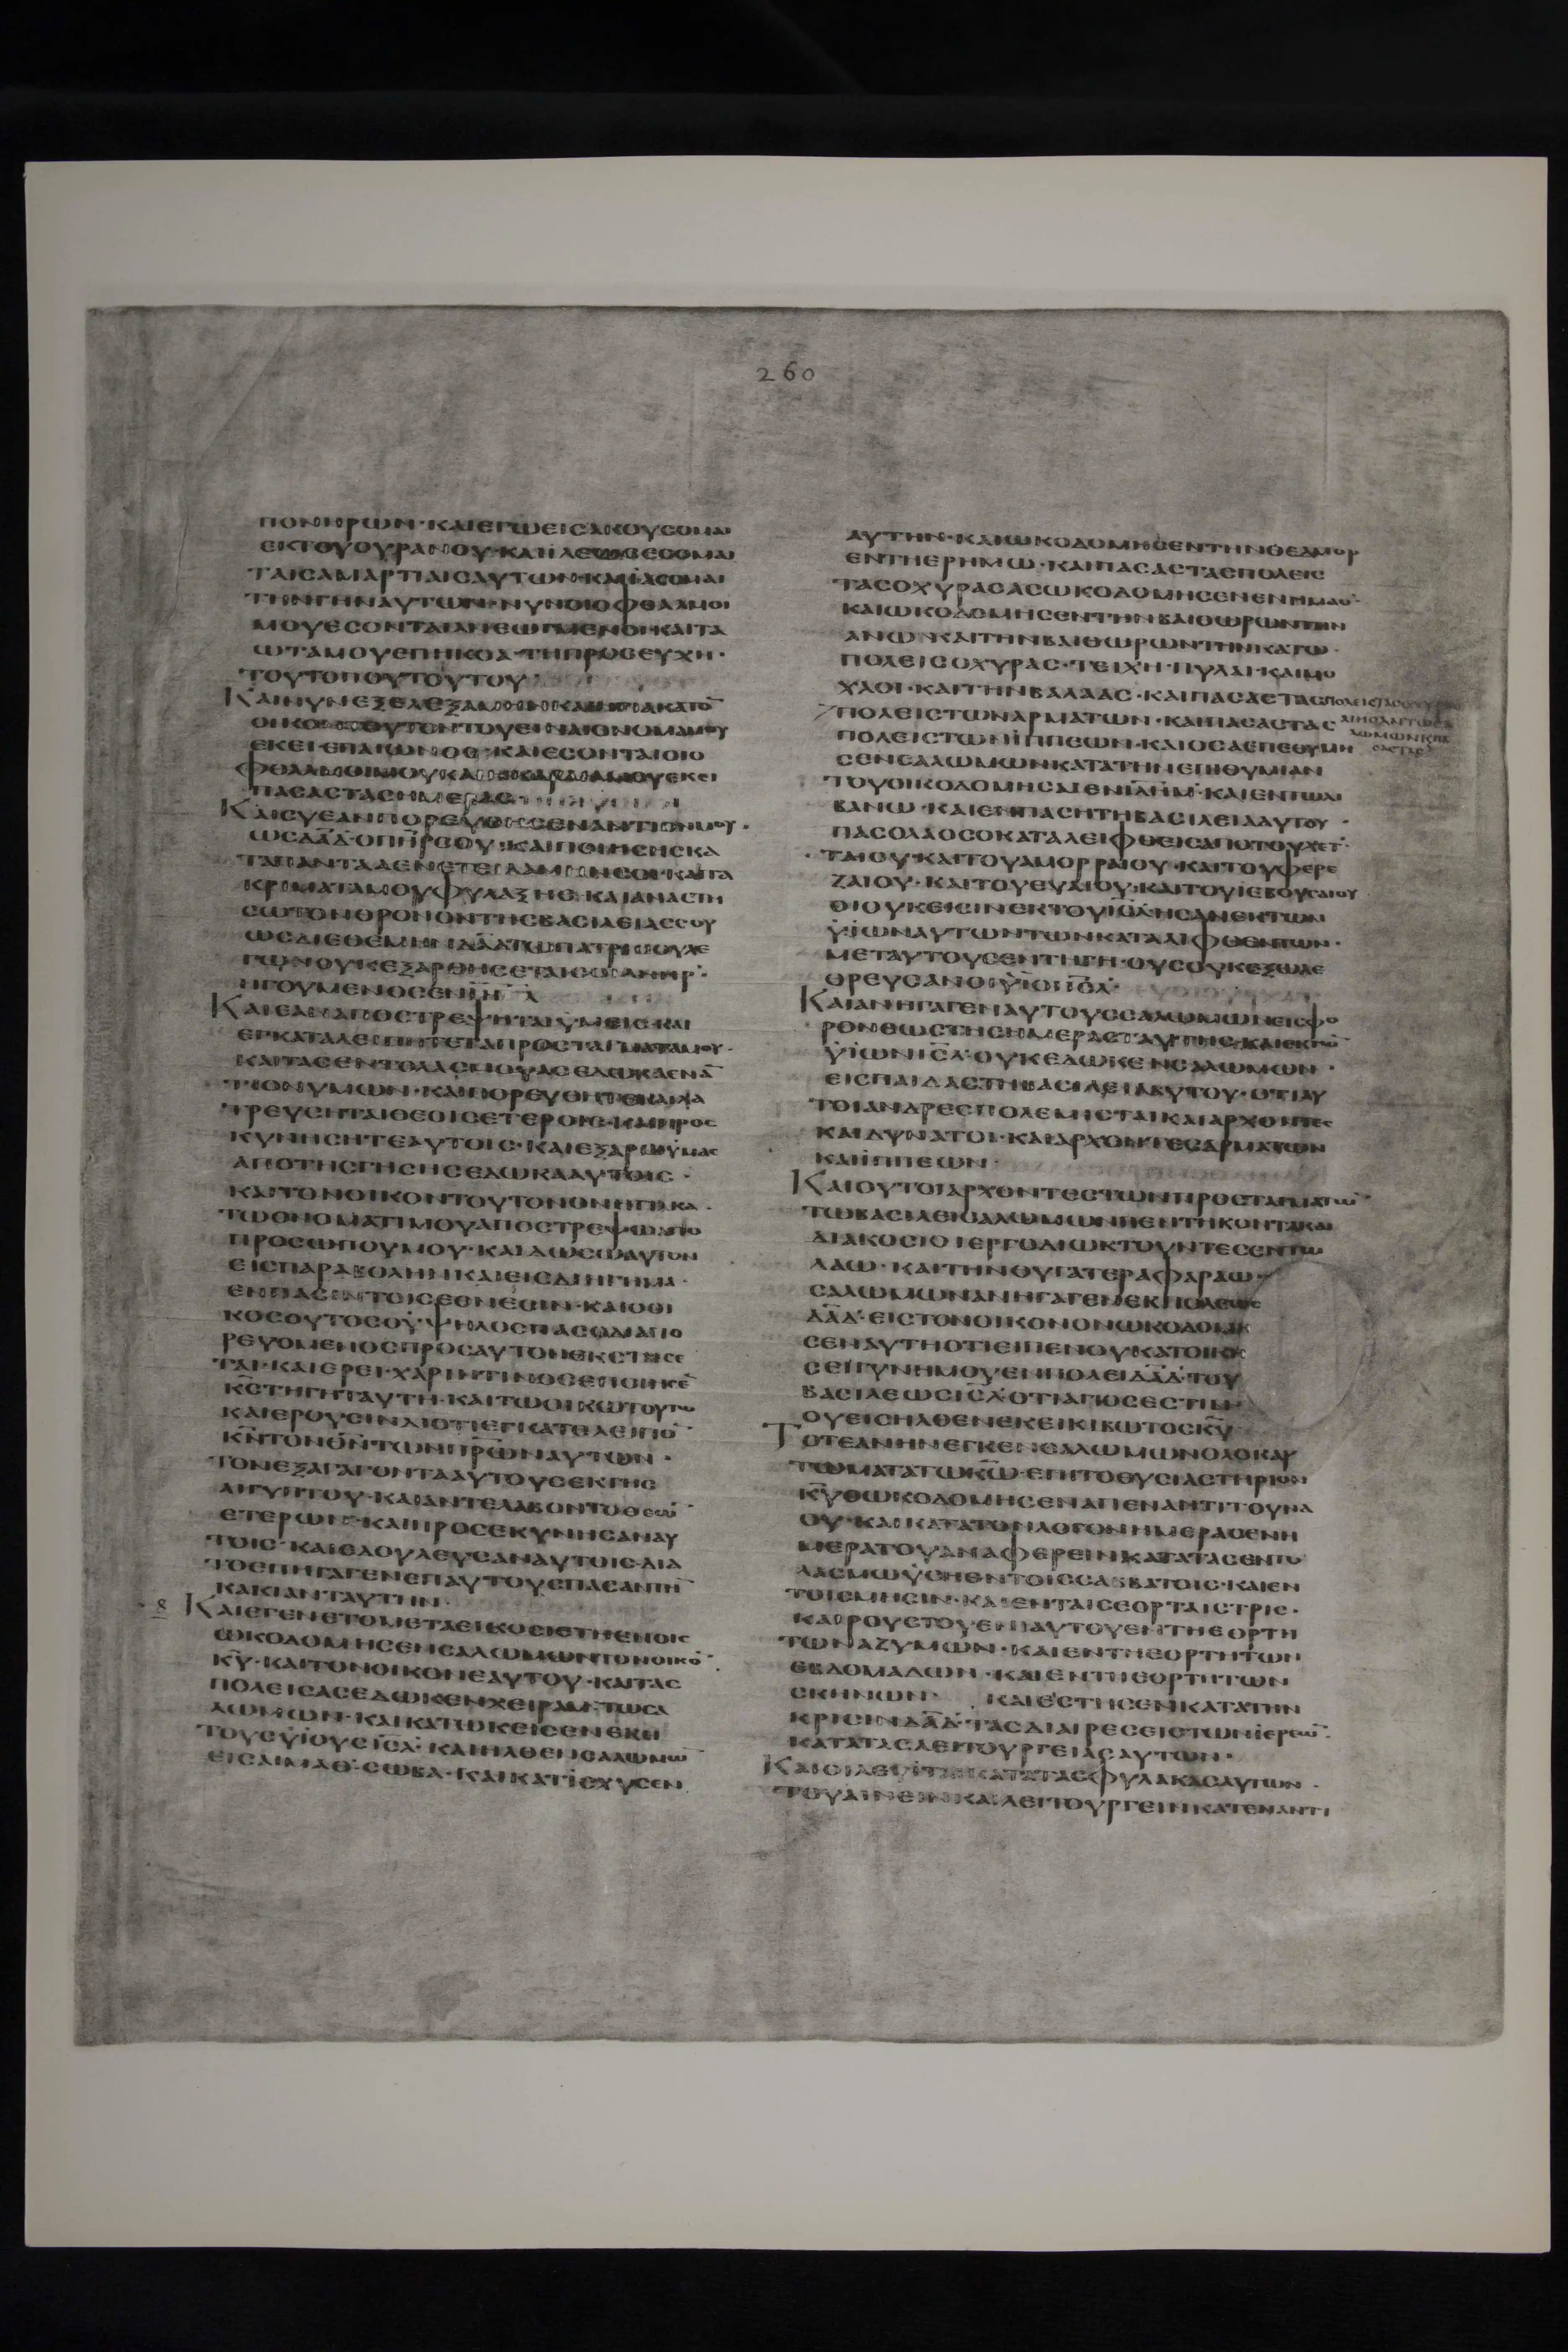 260
ΠΟΝΗΡΩΝ·ΚΑΙΕΓΩΕΙΣΑΚΟΥΣΟΜΑΙ
ΕΚΤΟΥΟΥΡΑΝΟΥ·ΚΑΙΪΛΕΩΣΕΣΟΜΑΙ
ΤΑΙΣΑΜΑΡΤΙΑΙΣΑΥΤΩΝ·ΚΑΙΪΑΣΟΜΑΙ
ΤΗΝΓΗΝΑΥΤΩΝ·ΝΥΝΟΙΟΦΘΑΛΜΟΙ
ΜΟΥΕΣΟΝΤΑΙΑΝΕΩΓΜΕΝΟΙ·ΚΑΙΤΑ
ΩΤΑΜΟΥΕΠΗΚΟΑ·ΤΗΠΡΟΣΕΥΧΗ·
ΤΟΥΤΟΠΟΥΤΟΥΤΟΥ
ΚΑΙΝΥΝΕΞΕΛΕΞΑΜΗΝΚΑΙΗΓΙΑΚΑΤΟ̅
ΟΙΚΟΝΤΟΥΤΟΝΤΟΥΕΙΝΑΙΟΝΟΜΑΜΟΥ
ΕΚΕΙΕΠΑΙΩΝΟΣ·ΚΑΙΕΣΟΝΤΑΙΟΙΟ
ΦΘΑΛΜΟΙΜΟΥΚΑΙΗΚΑΡΔΙΑΜΟΥΕΚΕΙ
ΠΑΣΑΣΤΑΣΗΜΕΡΑΣ·
ΚΑΙΣΥΕΑΝΠΟΡΕΥΘΗΣΕΝΑΝΤΙΟΝΜΟΥ·
ΩΣΔΑ̅Δ̅·ΟΠΗ̅Ρ̅ΣΟΥ·ΚΑΙΠΟΙΗΣΗΣΚΑ
ΤΑΠΑΝΤΑΑΕΝΕΤΕΙΛΑΜΗΝΣΟΙ·ΚΑΙΤΑ
ΚΡΙΜΑΤΑΜΟΥΦΥΛΑΞΗΣ·ΚΑΙΑΝΑΣΤΗ
ΣΩΤΟΝΘΡΟΝΟΝΤΗΣΒΑΣΙΛΕΙΑΣΣΟΥ
ΩΣΔΙΕΘΕΜΗΝΔΑ̅Δ̅ΤΩΠΑΤΡΙΣΟΥΛΕ
ΓΩΝΟΥΚΕΞΑΡΘΗΣΕΤΑΙΣΟΙΑΝΗΡ·
ΗΓΟΥΜΕΝΟΣΕΝΙ̅Η̅Λ̅
ΚΑΙΕΑΝΑΠΟΣΤΡΕΨΗΤΑΙΫΜΕΙΣ·ΚΑΙ
ΕΓΚΑΤΑΛΕΙΠΗΤΕΤΑΠΡΟΣΤΑΓΜΑΤΑΜΟΥ·
ΚΑΙΤΑΣΕΝΤΟΛΑΣΜΟΥΑΣΕΔΩΚΑΕΝΑ̅
ΤΙΟΝΥΜΩΝ·ΚΑΙΠΟΡΕΥΘΗΤΕΚΑΙΛΑ
ΤΡΕΥΣΗΤΑΙΘΕΟΙΣΕΤΕΡΟΙΣ·ΚΑΙΠΡΟΣ
ΚΥΝΗΣΗΤΕΑΥΤΟΙΣ·ΚΑΙΕΞΑΡΩΫΜΑΣ
ΑΠΟΤΗΣΓΗΣΗΣΕΔΩΚΑΑΥΤΟΙΣ·
ΚΑΙΤΟΝΟΙΚΟΝΤΟΥΤΟΝΟΝΗΓΙΑΚΑ·
ΤΩΟΝΟΜΑΤΙΜΟΥΑΠΟΣΤΡΕΨΩΑΠΟ
ΠΡΟΣΩΠΟΥΜΟΥ·ΚΑΙΔΩΣΩΑΥΤΟΝ
ΕΙΣΠΑΡΑΒΟΛΗΝΚΑΙΕΙΣΔΙΗΓΗΜΑ·
ΕΝΠΑΣΙΝΤΟΙΣΕΘΝΕΣΙΝ·ΚΑΙΟΟΙ
ΚΟΣΟΥΤΟΣΟΫΨΗΛΟΣΠΑΣΟΔΙΑΠΟ
ΡΕΥΟΜΕΝΟΣΠΡΟΣΑΥΤΟΝΕΚΣΤΗΣΕ
ΤΑΙ·ΚΑΙΕΡΕΙ·ΧΑΡΙΝΤΙΝΟΣΕΠΟΙΗΣΕ̅
Κ̅Σ̅ΤΗΓΗΤΑΥΤΗ·ΚΑΙΤΩΟΙΚΩΤΟΥΤΩ
ΚΑΙΕΡΟΥΣΙΝΔΙΟΤΙΕΓΚΑΤΕΛΕΙΠΟ̅
Κ̅Ν̅ΤΟΝΘ̅Ν̅ΤΩΝΠ̅Ρ̅Ω̅ΝΑΥΤΩΝ·
ΤΟΝΕΞΑΓΑΓΟΝΤΑΑΥΤΟΥΣΕΚΓΗΣ
ΑΙΓΥΠΤΟΥ·ΚΑΙΑΝΤΕΛΑΒΟΝΤΟΘΕΩ̅
ΕΤΕΡΩΝ·ΚΑΙΠΡΟΣΕΚΥΝΗΣΑΝΑΥ
ΤΟΙΣ·ΚΑΙΕΔΟΥΛΕΥΣΑΝΑΥΤΟΙΣ·ΔΙΑ
ΤΟΕΠΗΓΑΓΕΝΕΠΑΥΤΟΥΣΠΑΣΑΝΤΗ̅
ΚΑΚΙΑΝΤΑΥΤΗΝ·
8 ΚΑΙΕΓΕΝΕΤΟΜΕΤΑΕΙΚΟΣΙΕΤΗΕΝΟΙΣ
ΩΚΟΔΟΜΗΣΕΝΣΑΛΩΜΩΝΤΟΝΟΙΚΟ̅
Κ̅Υ̅·ΚΑΙΤΟΝΟΙΚΟΝΕΑΥΤΟΥ·ΚΑΙΤΑΣ
ΠΟΛΕΙΣΑΣΕΔΩΚΕΝΧΕΙΡΑΜΤΩΣΑ
ΛΩΜΩΝ·ΚΑΙΚΑΤΩΚΕΙΣΕΝΕΚΕΙ
ΤΟΥΣΫΪΟΥΣΙ̅Σ̅Λ̅·ΚΑΙΗΛΘΕΝΣΑΛΩΜΩ̅
ΕΙΣΑΙΜΑΘ·ΣΩΒΑ·ΚΑΙΚΑΤΪΣΧΥΣΕΝ
ΑΥΤΗΝ·ΚΑΙΩΚΟΔΟΜΗΣΕΝΤΗΝΘΕΔΜΟΡ
ΕΝΤΗΕΡΗΜΩ·ΚΑΙΠΑΣΑΣΤΑΣΠΟΛΕΙΣ
ΤΑΣΟΧΥΡΑΣΑΣΩΚΟΔΟΜΗΣΕΝΕΝΗΜΑΘ·
ΚΑΙΩΚΟΔΟΜΗΣΕΝΤΗΝΒΑΙΘΩΡΩΝΤΗΝ
ΑΝΩ·ΚΑΙΤΗΝΒΑΙΘΩΡΩΝΤΗΝΚΑΤΩ·
ΠΟΛΕΙΣΟΧΥΡΑΣ·ΤΕΙΧΗ·ΠΥΛΑΙ·ΚΑΙΜΟ
ΧΛΟΙ·ΚΑΙΤΗΝΒΑΛΑΑΣ·ΚΑΙΠΑΣΑΣΤΑΣ
ΠΟΛΕΙΣΤΩΝΑΡΜΑΤΩΝ·ΚΑΙΠΑΣΑΣΤΑΣ
ΠΟΛΕΙΣΤΩΝΪΠΠΕΩΝ·ΚΑΙΟΣΑΕΠΕΘΥΜΗ
ΣΕΝΣΑΛΩΜΩΝΚΑΤΑΤΗΝΕΠΙΘΥΜΙΑΝ
ΤΟΥΟΙΚΟΔΟΜΗΣΑΙΕΝΙ̅Λ̅Η̅Μ̅·ΚΑΙΕΝΤΩΛΙ
ΒΑΝΩ·ΚΑΙΕΝΠΑΣΗΤΗΒΑΣΙΛΕΙΑΑΥΤΟΥ·
ΠΑΣΟΛΑΟΣΟΚΑΤΑΛΕΙΦΘΕΙΣΑΠΟΤΟΥΧΕΤ·
ΤΑΙΟΥ·ΚΑΙΤΟΥΑΜΟΡΡΑΙΟΥ·ΚΑΙΤΟΥΦΕΡΕ
ΖΑΙΟΥ·ΚΑΙΤΟΥΕΥΑΙΟΥ·ΚΑΙΤΟΥΪΕΒΟΥΣΑΙΟΥ
ΟΙΟΥΚΕΙΣΙΝΕΚΤΟΥΙ̅Σ̅Λ̅ΗΣΑΝΕΚΤΩΝ
ΫΪΩΝΑΥΤΩΝΤΩΝΚΑΤΑΛΙΦΘΕΝΤΩΝ·
ΜΕΤΑΥΤΟΥΣΕΝΤΗΓΗ·ΟΥΣΟΥΚΕΞΩΛΕ
ΘΡΕΥΣΑΝΟΙΫΙΟΙΙ̅Σ̅Λ̅·
ΚΑΙΑΝΗΓΑΓΕΝΑΥΤΟΥΣΣΑΛΩΜΩΝΕΙΣΦΟ
ΡΟΝΕΩΣΤΗΣΗΜΕΡΑΣΤΑΥΤΗΣ·ΚΑΙΕΚΤΩ̅
ΫΪΩΝΙ̅Σ̅Λ̅·ΟΥΚΕΔΩΚΕΝΣΑΛΩΜΩΝ·
ΕΙΣΠΑΙΔΑΣΤΗΒΑΣΙΛΕΙΑΑΥΤΟΥ·ΟΤΙΑΥ
ΤΟΙΑΝΔΡΕΣΠΟΛΕΜΙΣΤΑΙΚΑΙΑΡΧΟΝΤΕΣ
ΚΑΙΔΥΝΑΤΟΙ·ΚΑΙΑΡΧΟΝΤΕΣΑΡΜΑΤΩΝ
ΚΑΙΪΠΠΕΩΝ·
ΚΑΙΟΥΤΟΙΑΡΧΟΝΤΕΣΤΩΝΠΡΟΣΤΑΓΜΑΤΩ̅
ΤΩΒΑΣΙΛΕΙΣΑΛΩΜΩΝΠΕΝΤΗΚΟΝΤΑΚΑΙ
ΔΙΑΚΟΣΙΟΙΕΡΓΟΔΙΩΚΤΟΥΝΤΕΣΕΝΤΩ
ΛΑΩ·ΚΑΙΤΗΝΘΥΓΑΤΕΡΑΦΑΡΑΩ·
ΣΑΛΩΜΩΝΑΝΗΓΑΓΕΝΕΚΠΟΛΕΩΣ
ΔΑ̅Δ̅·ΕΙΣΤΟΝΟΙΚΟΝΟΝΩΚΟΔΟΜΗ
ΣΕΝΑΥΤΗΟΤΙΕΙΠΕΝΟΥΚΑΤΟΙΚΗ
ΣΕΙΓΥΝΗΜΟΥΕΝΠΟΛΕΙΔΑ̅Δ̅·ΤΟΥ
ΒΑΣΙΛΕΩΣΙ̅Σ̅Λ̅·ΟΤΙΑΓΙΟΣΕΣΤΙΝ·
ΟΥΕΙΣΗΛΘΕΝΕΚΕΙΚΙΒΩΤΟΣΚ̅Υ̅·
ΤΟΤΕΑΝΗΝΕΓΚΕΝΣΑΛΩΜΩΝΟΛΟΚΑΥ
ΤΩΜΑΤΑΤΩΚ̅Ω̅·ΕΠΙΤΟΘΥΣΙΑΣΤΗΡΙΟΝ
Κ̅Υ̅ΟΩΚΟΔΟΜΗΣΕΝΑΠΕΝΑΝΤΙΤΟΥΝΑ
ΟΥ·ΚΑΙΚΑΤΑΤΟΝΛΟΓΟΝΗΜΕΡΑΣΕΝΗ
ΜΕΡΑΤΟΥΑΝΑΦΕΡΕΙΝΚΑΤΑΤΑΣΕΝΤΟ
ΛΑΣΜΩΫΣΗΕΝΤΟΙΣΣΑΒΒΑΤΟΙΣ·ΚΑΙΕΝ
ΤΟΙΣΜΗΣΙΝ·ΚΑΙΕΝΤΑΙΣΕΟΡΤΑΙΣΤΡΙΣ·
ΚΑΙΡΟΥΣΤΟΥΕΝΙΑΥΤΟΥΕΝΤΗΕΟΡΤΗ
ΤΩΝΑΖΥΜΩΝ·ΚΑΙΕΝΤΗΕΟΡΤΗΤΩΝ
ΕΒΔΟΜΑΔΩΝ·ΚΑΙΕΝΤΗΕΟΡΤΗΤΩΝ
ΣΚΗΝΩΝ· ΚΑΙΕΣΤΗΣΕΝΚΑΤΑΤΗΝ
ΚΡΙΣΙΝΔΑ̅Δ̅·ΤΑΣΔΙΑΙΡΕΣΕΙΣΤΩΝΪΕΡΕΩ̅·
ΚΑΤΑΤΑΣΛΕΙΤΟΥΡΓΕΙΑΣΑΥΤΩΝ·
ΚΑΙΟΙΛΕΥΪΤΑΙΚΑΤΑΤΑΣΦΥΛΑΚΑΣΑΥΤΩΝ·
ΤΟΥΑΙΝΕΙΝΚΑΙΛΕΙΤΟΥΡΓΕΙΝΚΑΤΕΝΑΝΤΙ